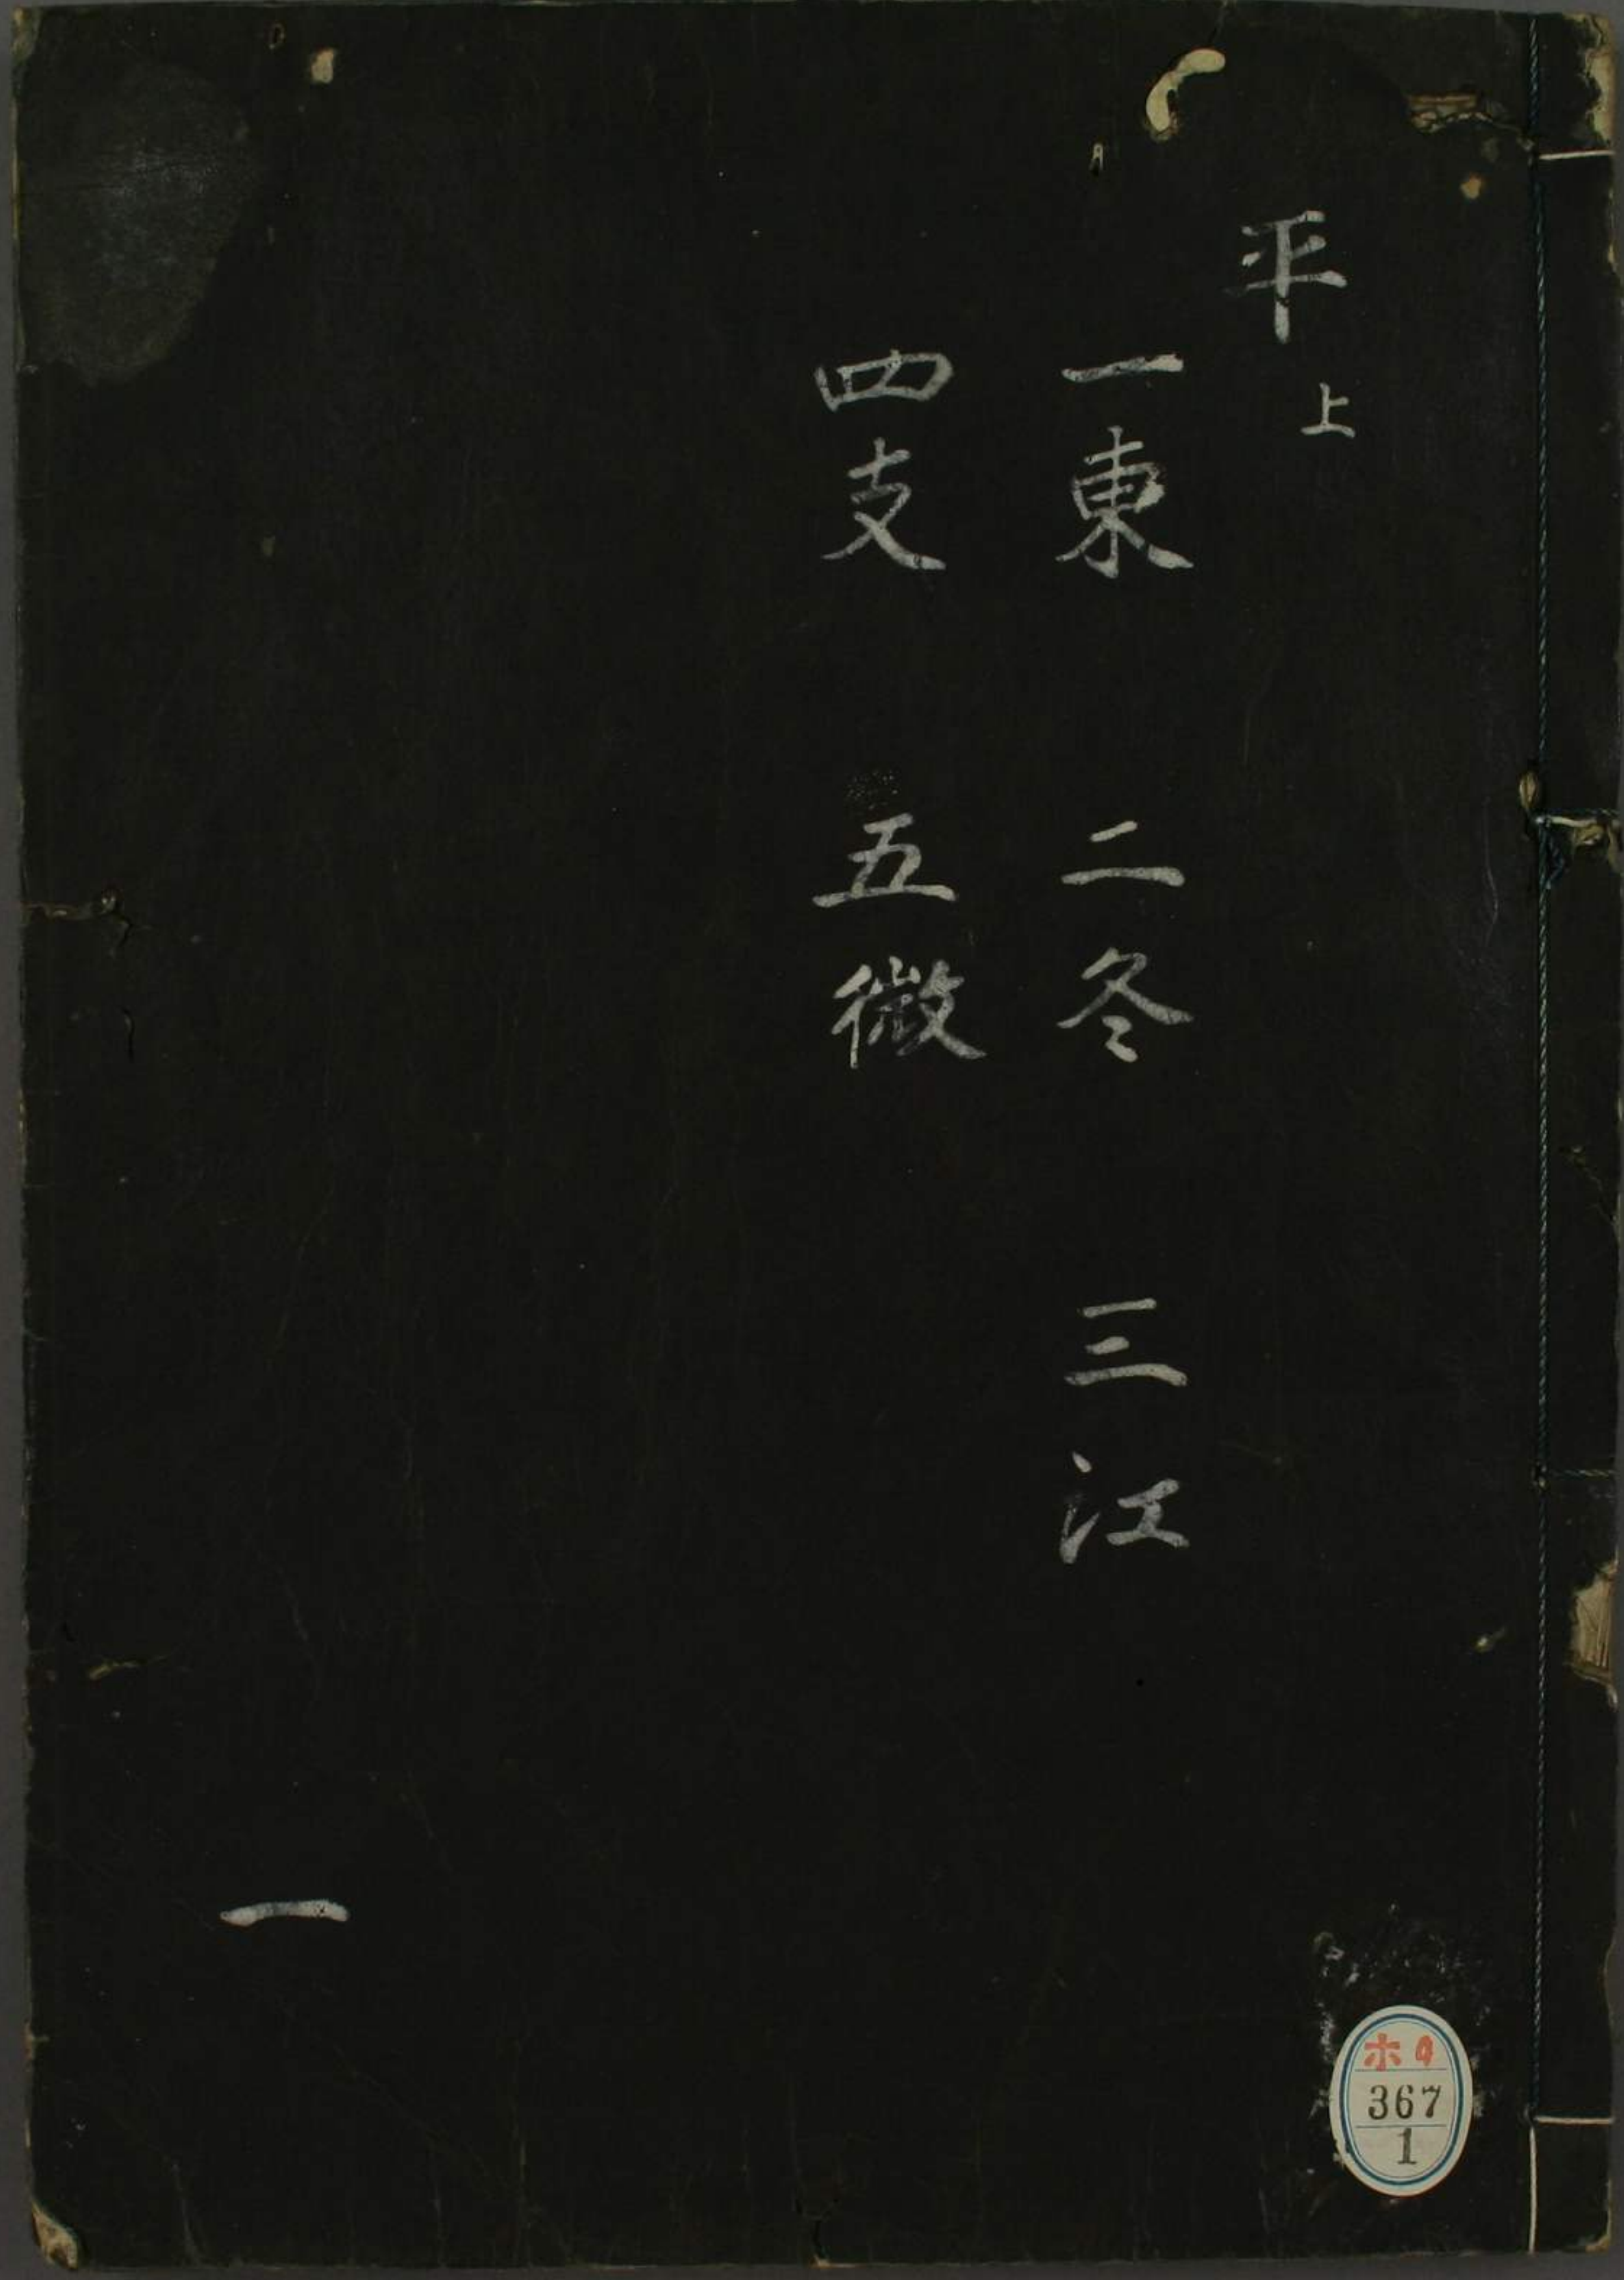 平上
一東 二冬 三江
四支 五微
一
ホ4
367
1